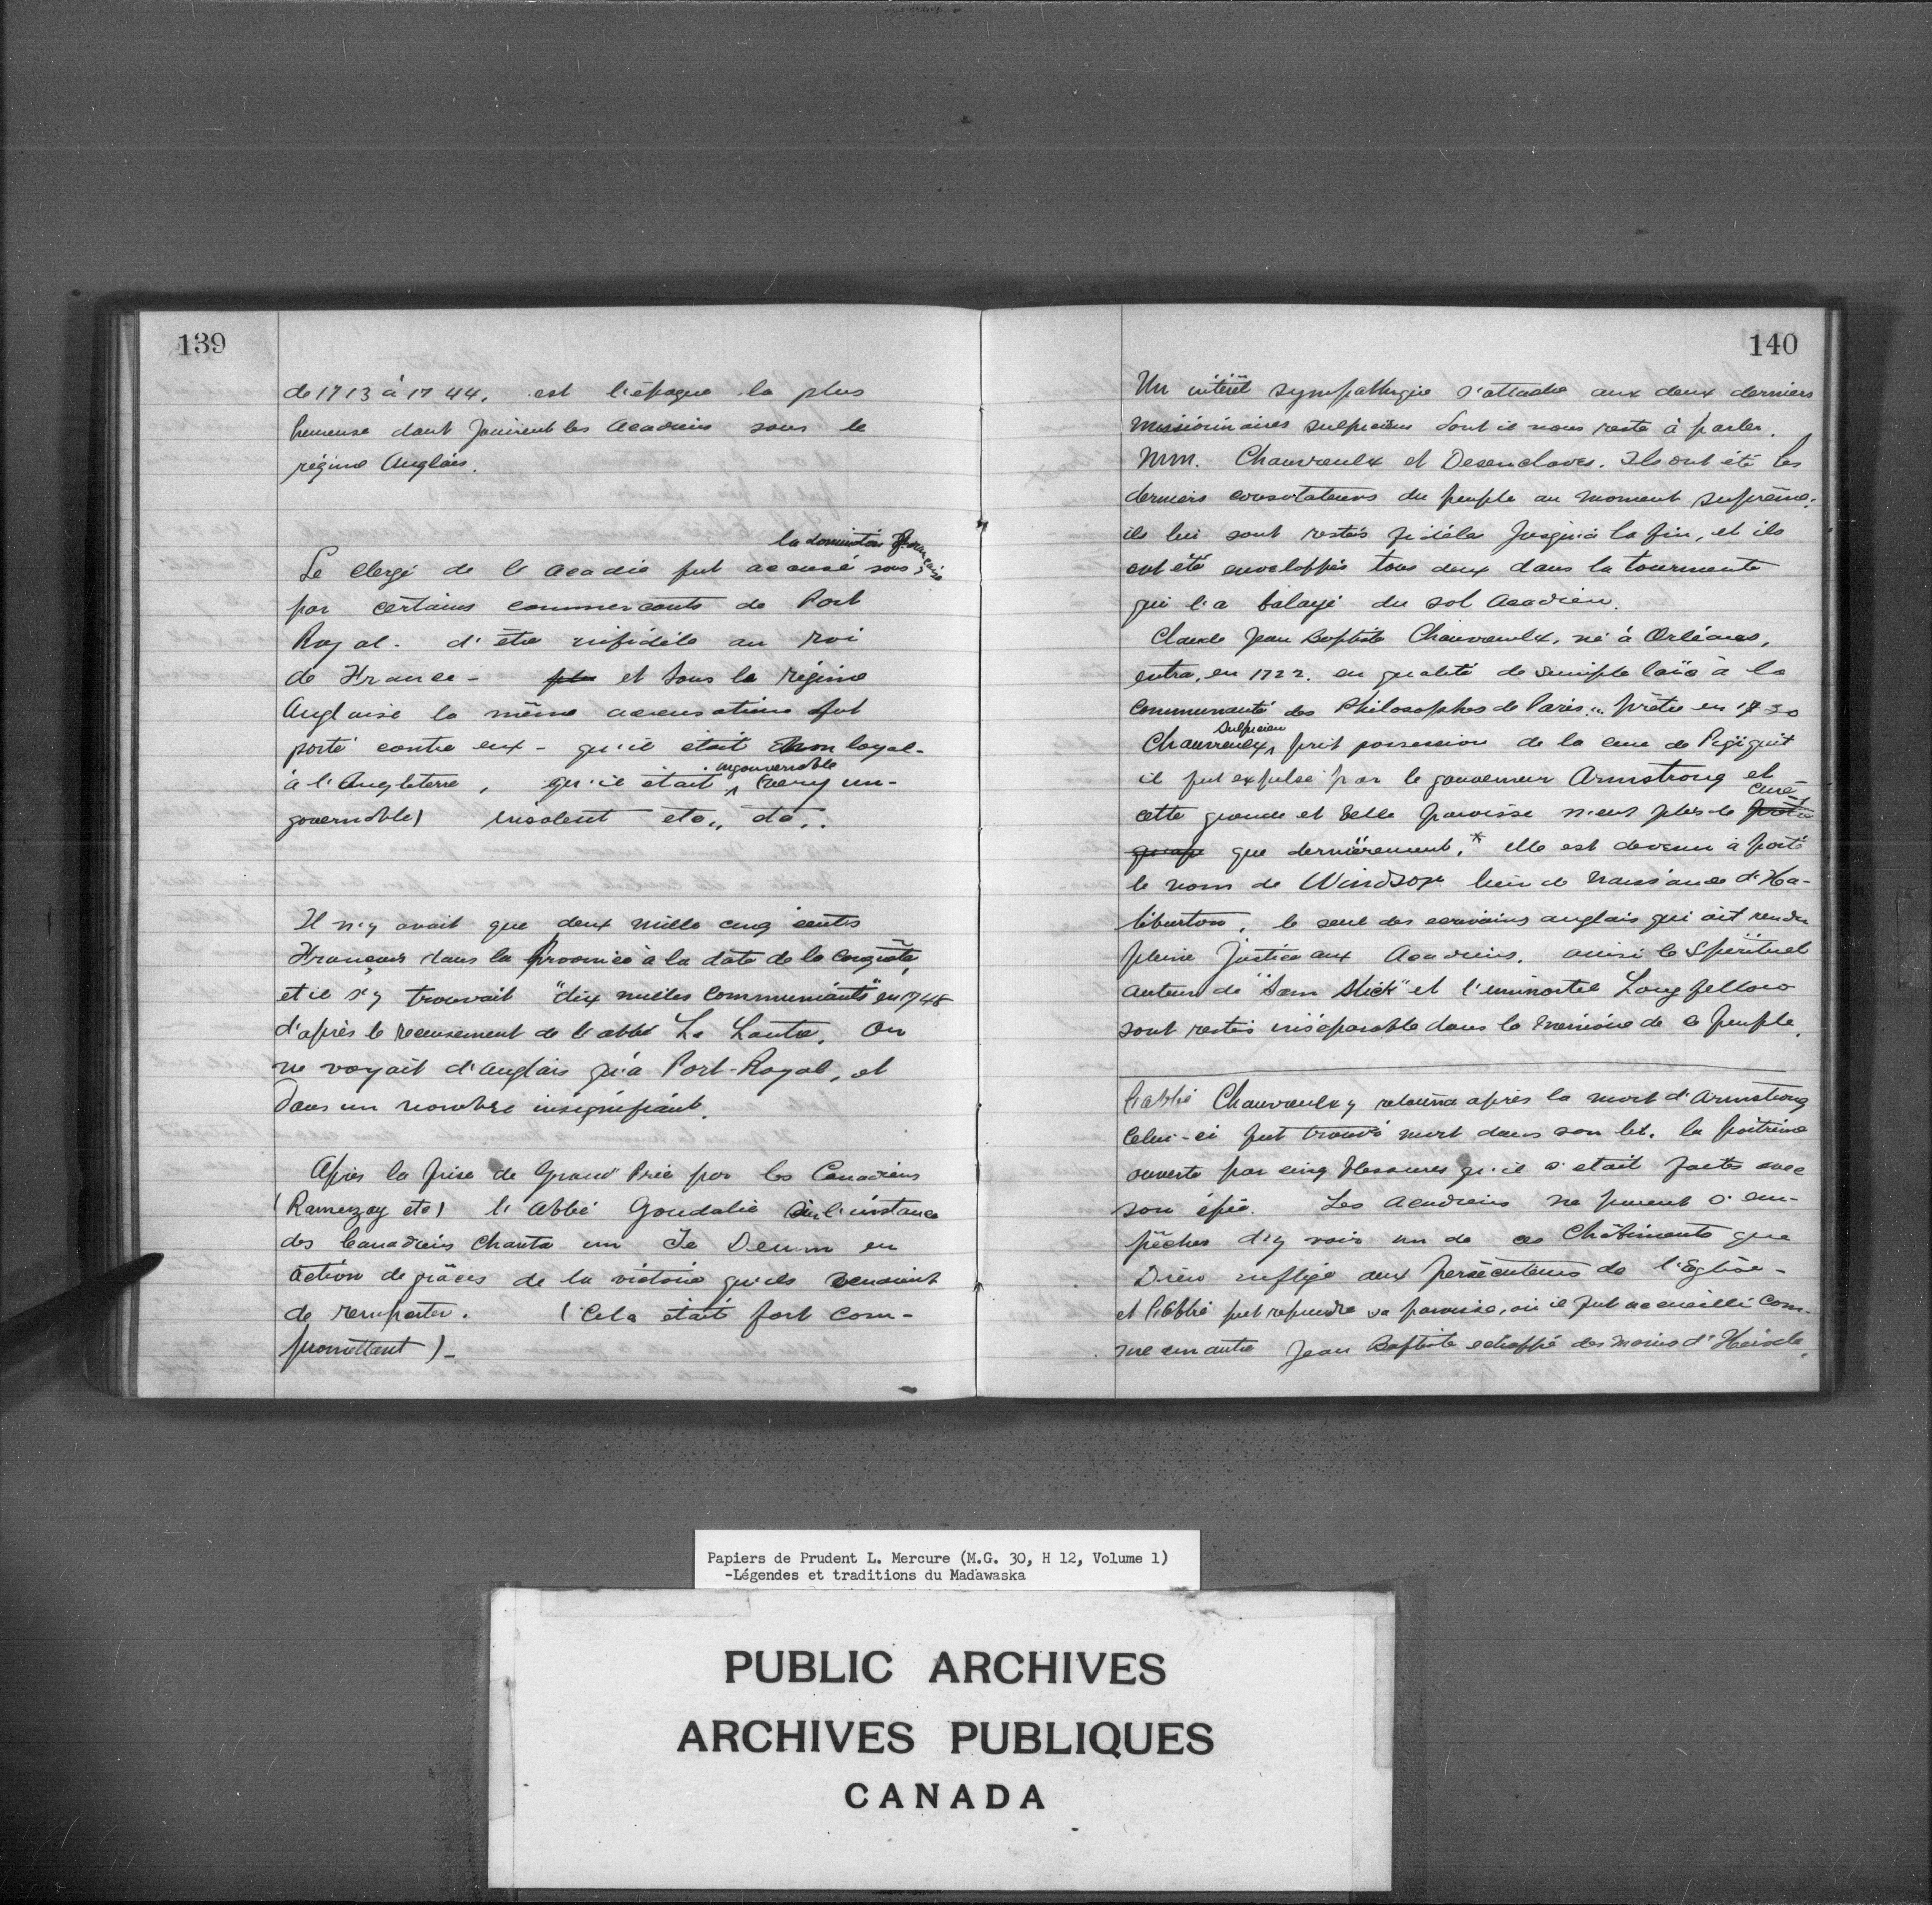 139
de 1713 à 1744. est l'époque la plus
heureuse dont jouirent les Acadiens sous le
régime Anglais.
la domination française
Le clergé de l'Acadie fut accusé sous
par certains commercants de Port
Royal - d'être infidèle au roi
de France - et sous le régime
Anglaise la même accusations fut
porté contre eux - qu'il était non loyal -
ingouvernable
à l'Angleterre, qu'il était (very un-
governable) insolent etc,, do..
Il n'y avait que deux mille cinq cents
Français dans la Province à la date de la conquête,
et il s'y trouvait "dix milles communiants" en 1748
d'après le recensement de l'abbé Le Loutre. On
ne voyait d'Anglais qu'à Port-Royal, et
dans un nombre insignifiant.
Après la prise de Grand Pré par les Canadiens
(Ramezay etc) l'abbé Goudalie sur l'instance
des Canadiens chanta un Te Deum en
action de grâces de la victoire qu'ils venaient
de remporter. (Cela était fort com-
promettant) -
140
Un intérêt sympathique s'attache aux deux derniers
missionnaires sulpiciens dont il nous reste à parler.
MM. Chauvreulx et Desenclaves. Ils ont été les
derniers consolateurs du peuple au moment suprême;
ils lui sont restés fidèles jusqu'à la fin, et ils
ont été enveloppés tous deux dans la tourmente
qui l'a balayé du sol Acadien.
Claude Jean Baptiste Chauvreulx, né à Orléans,
entra, en 1722. en qualité de simple laïc à la
communauté des Philosophes de Paris.. Prêtre en 1730
Sulpicien
Chauvreulx, prit possession de la cure de Pigiguit
il fut expulsé par le gouverneur Armstrong et
curé
cette grande et belle paroisse n'eut plus de
que dernièrement.* elle est devenu à porté
le nom de Windsor lieu de naissance d'Ha-
liburton, le seul des ecrivains anglais qui ait rendu
pleine justice aux Acadiens. ainsi le spirituel
auteur de "Sam Slick" et l'immortel Longfellow
sont restés inséparable dans la mémoire de ce peuple.
l'abbé Chauvreulx y retourna après la mort d'Armstrong
Celui-ci fut trouvé mort dans son lit. la poitrine
ouverte par cinq blessures qu'il s'était faites avec
son épée. Les Acadiens ne purent s'em-
pêcher d'y voir un de ces châtiments que
Dieu inflige aux persécuteurs de l'Eglise -
et l'abbé put reprendre sa paroisse, où il fut accueilli com-
me un autre Jean Baptiste echappé des mains d'Hérode.
Papiers de Prudent L. Mercure (M.G. 30, H 12, Volume 1)
-Légendes et traditions du Madawaska
PUBLIC ARCHIVES
ARCHIVES PUBLIQUES
CANADA